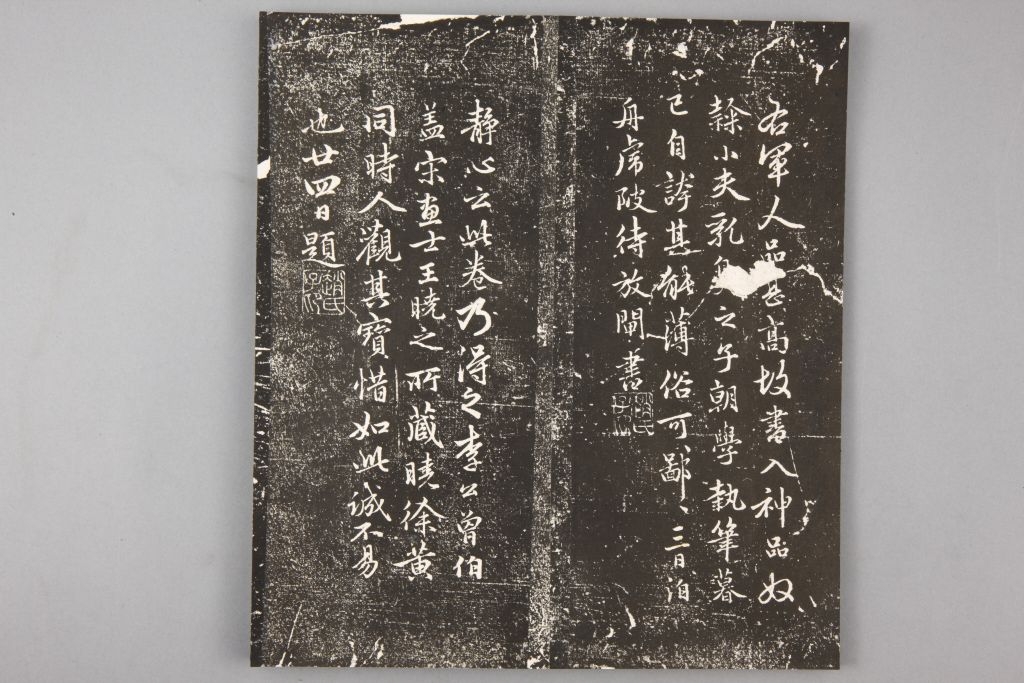 右軍人品甚高故書入神品奴
隸小夫乳臭之子朝學執筆暮
已自誇其能薄俗可鄙〻三日泊
舟虎陂待放閘書
趙氏子昂
靜心云此卷乃得之李公曾伯
盖宋畫士王曉之所藏曉徐黃
同時人觀其寶惜如此誠不易
也廿四日題
趙氏子昂